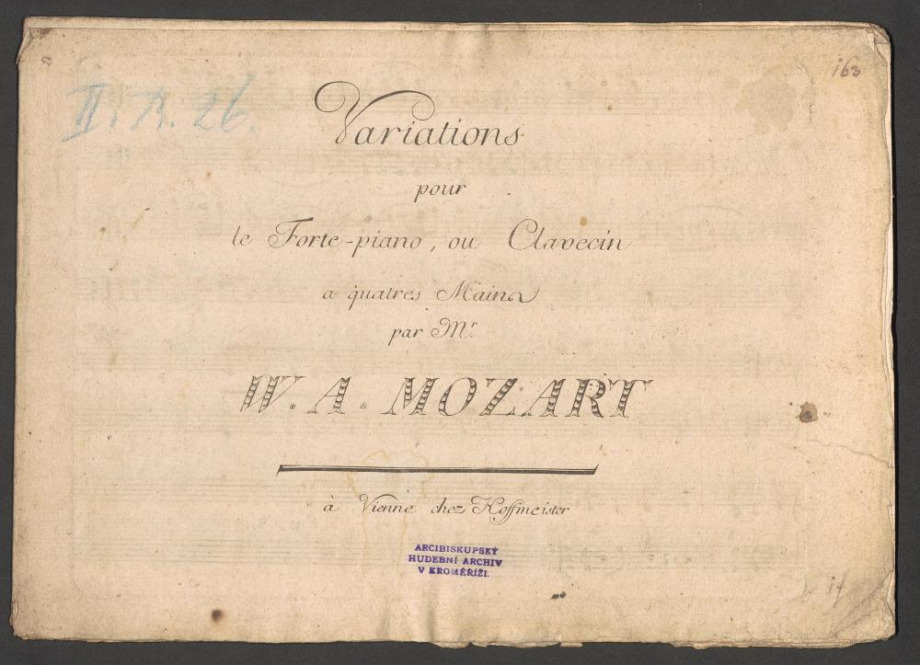 163
II. A. 26.
Variations
pour
le Forte-piano, ou Clavecin
a quatres Mains
par Mr.
W. A. MOZART
à Vienne chez Hoffmeister
ARCIBISKUPSKÝ
HUDEBNÍ ARCHIV
V KROMĚŘÍŽI.